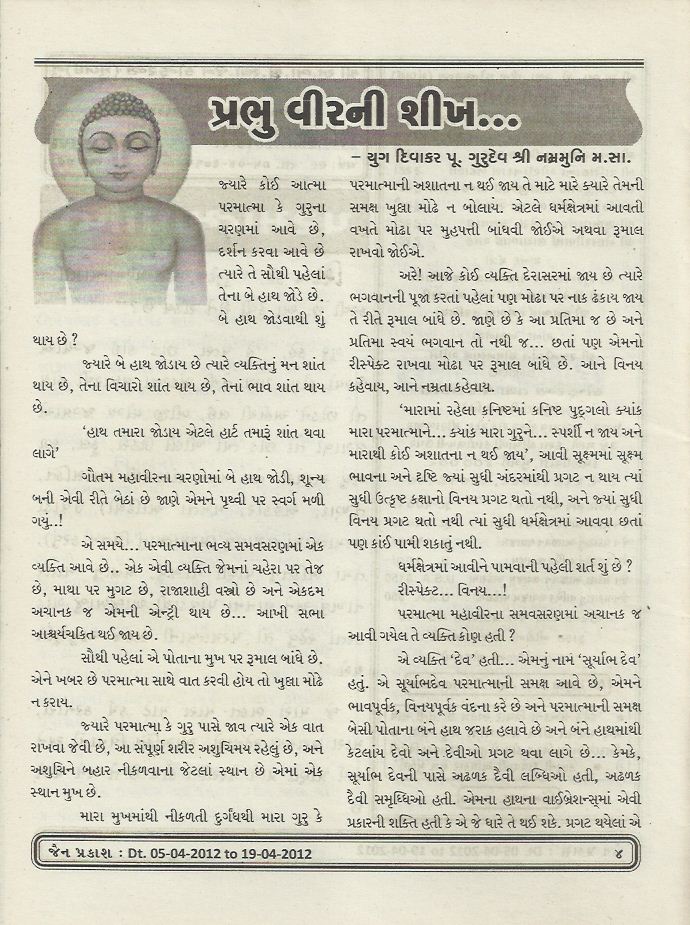 પ્રભુ વીરની શીખ...
– યુગ દિવાકર પૂ. ગુરુદેવ શ્રી નમ્રમુનિ મ.સા.
જ્યારે કોઈ આત્મા
પરમાત્મા કે ગુરુના
ચરણમાં આવે છે,
દર્શન કરવા આવે છે
ત્યારે તે સૌથી પહેલાં
તેના બે હાથ જોડે છે.
બે હાથ જોડવાથી શું
થાય છે ?
જ્યારે બે હાથ જોડાય છે ત્યારે વ્યક્તિનું મન શાંત
થાય છે, તેના વિચારો શાંત થાય છે, તેનાં ભાવ શાંત થાય
છે.
‘હાથ તમારા જોડાય એટલે હાર્ટ તમારૂં શાંત થવા
લાગે’
ગૌતમ મહાવીરના ચરણોમાં બે હાથ જોડી, શૂન્ય
બની એવી રીતે બેઠાં છે જાણે એમને પૃથ્વી પર સ્વર્ગ મળી
ગયું..!
એ સમયે... પરમાત્માના ભવ્ય સમવસરણમાં એક
વ્યક્તિ આવે છે.. એક એવી વ્યક્તિ જેમનાં ચહેરા પર તેજ
છે, માથા પર મુગટ છે, રાજાશાહી વસ્ત્રો છે અને એકદમ
અચાનક જ એમની એન્ટ્રી થાય છે... આખી સભા
આશ્ચર્યચકિત થઈ જાય છે.
સૌથી પહેલાં એ પોતાના મુખ પર રૂમાલ બાંધે છે.
એને ખબર છે પરમાત્મા સાથે વાત કરવી હોય તો ખુલા મોઢે
ન કરાય.
જ્યારે પરમાત્મા કે ગુરુ પાસે જાવ ત્યારે એક વાત
રાખવા જેવી છે, આ સંપૂર્ણ શરીર અશુચિમય રહેલું છે, અને
અશુચિને બહાર નીકળવાના જેટલાં સ્થાન છે એમાં એક
સ્થાન મુખ છે.
મારા મુખમાંથી નીકળતી દુર્ગંધથી મારા ગુરુ કે
પરમાત્માની અશાતના ન થઈ જાય તે માટે મારે ક્યારે તેમની
સમક્ષ ખુલા મોઢે ન બોલાય. એટલે ધર્મક્ષેત્રમાં આવતી
વખતે મોઢા પર મુહપત્તી બાંધવી જોઈએ અથવા રૂમાલ
રાખવો જોઈએ.
અરે! આજે કોઈ વ્યક્તિ દેરાસરમાં જાય છે ત્યારે
ભગવાનની પૂજા કરતાં પહેલાં પણ મોઢા પર નાક ઢંકાય જાય
તે રીતે રૂમાલ બાંધે છે. જાણે છે કે આ પ્રતિમા જ છે અને
પ્રતિમા સ્વયં ભગવાન તો નથી જ... છતાં પણ એમનો
રીસ્પેક્ટ રાખવા મોઢા પર રૂમાલ બાંધે છે. આને વિનય
કહેવાય, આને નમ્રતા કહેવાય.
‘મારામાં રહેલા કનિષ્ટમાં કનિષ્ટ પુદ્ગલો ક્યાંક
મારા પરમાત્માને... ક્યાંક મારા ગુરુને... સ્પર્શી ન જાય અને
મારાથી કોઈ અશાતના ન થઈ જાય’, આવી સૂક્ષ્મમાં સૂક્ષ્મ
ભાવના અને દ્રષ્ટિ જ્યાં સુધી અંદરમાંથી પ્રગટ ન થાય ત્યાં
સુધી ઉત્કૃષ્ટ કક્ષાનો વિનય પ્રગટ થતો નથી, અને જ્યાં સુધી
વિનય પ્રગટ થતો નથી ત્યાં સુધી ધર્મક્ષેત્રમાં આવવા છતાં
પણ કાંઈ પામી શકાતું નથી.
ધર્મક્ષેત્રમાં આવીને પામવાની પહેલી શર્ત શું છે ?
રીસ્પેક્ટ... વિનય...!
પરમાત્મા મહાવીરના સમવસરણમાં અચાનક જ
આવી ગયેલ તે વ્યક્તિ કોણ હતી ?
એ વ્યક્તિ ‘દેવ’ હતી... એમનું નામ ‘સૂર્યાભ દેવ’
હતું. એ સૂર્યાભદેવ પરમાત્માની સમક્ષ આવે છે, એમને
ભાવપૂર્વક, વિનયપૂર્વક વંદના કરે છે અને પરમાત્માની સમક્ષ
બેસી પોતાના બંને હાથ જરાક હલાવે છે અને બંને હાથમાંથી
કેટલાંય દેવો અને દેવીઓ પ્રગટ થવા લાગે છે... કેમકે,
સૂર્યાભ દેવની પાસે અઢળક દૈવી લબ્ધિઓ હતી, અઢળક
દૈવી સમૃધ્ધિઓ હતી. એમના હાથના વાઈબ્રેશન્સ્‌માં એવી
પ્રકારની શક્તિ હતી કે એ જે ધારે તે થઈ શકે. પ્રગટ થયેલાં એ
જૈન પ્રકાશ : Dt. 05-04-2012 to 19-04-2012
૪